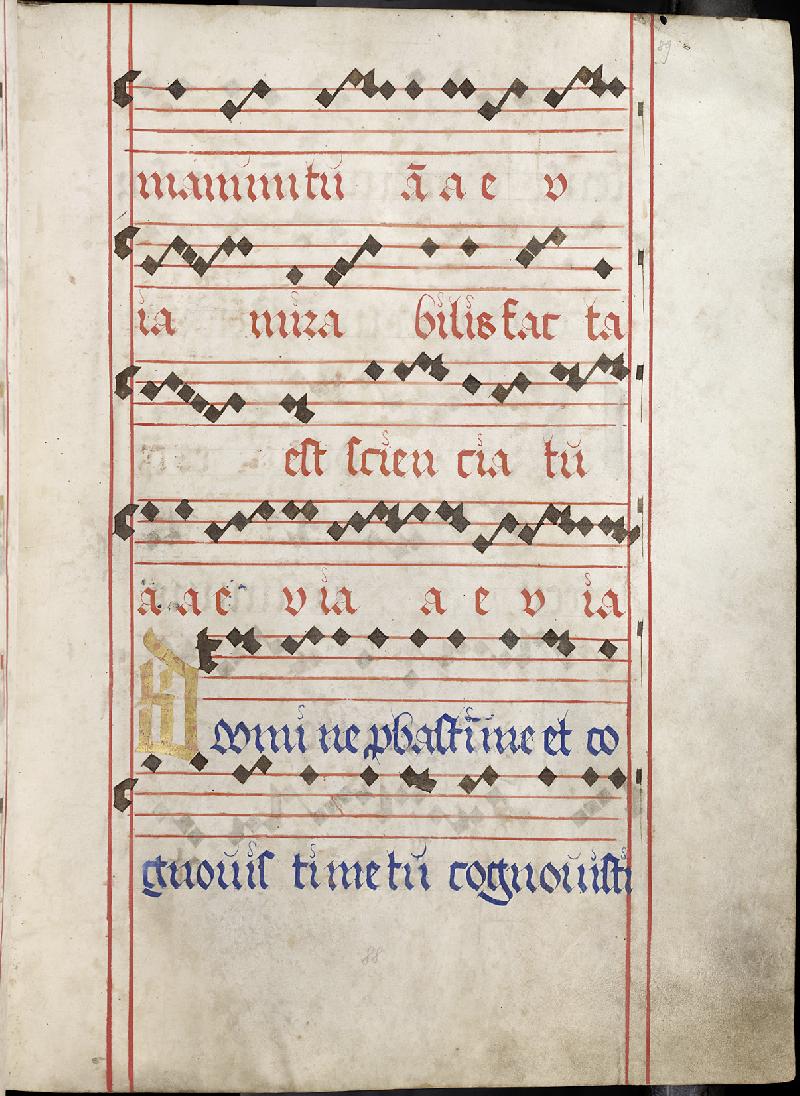 89
manum tu ā a e v
ia mira bilis fac ta
est scien cia tu
a a e v ia a e v ia
Domi ne pbasti me et co
gnouis ti me tu cognouisti
88